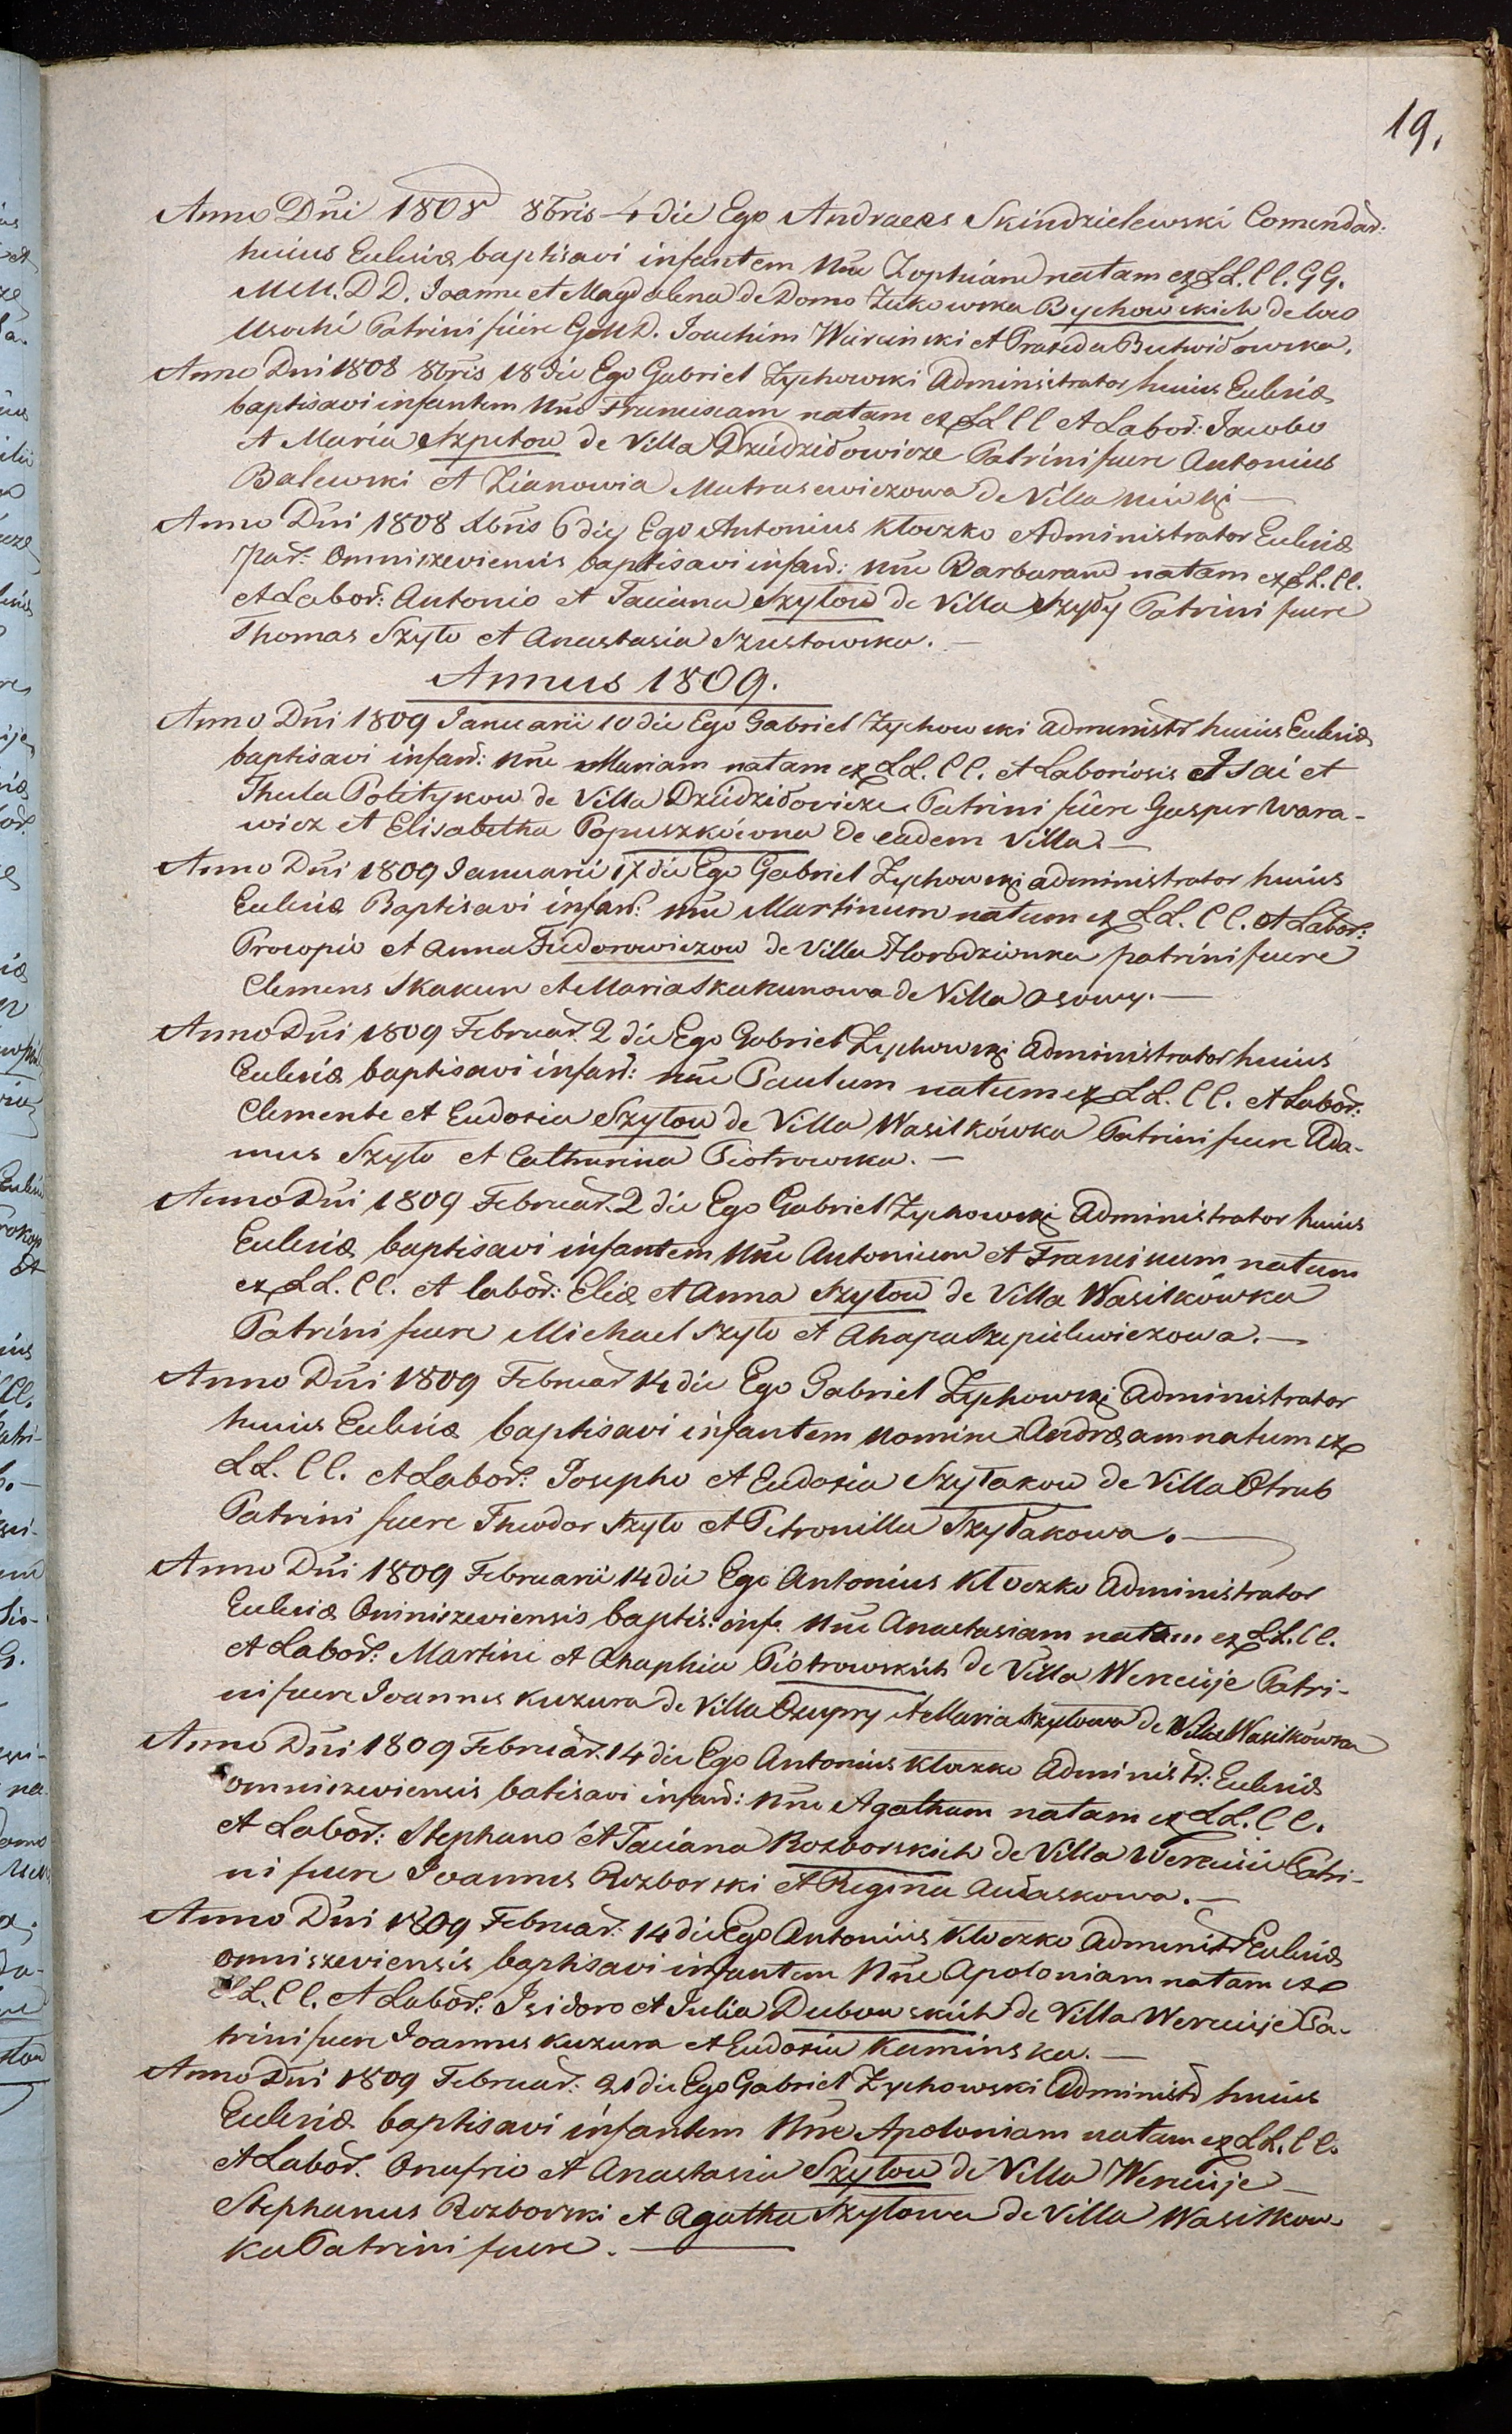 19.
Anno Dñi 1808 8bris 4 die Ego Andraeas Skindzielewski Comendad:
huius Eclesiæ baptisavi infantem Nne Zophiam natam ex LL. CC. GG.
MM. DD. Joanne et Magdalena de Domo Zukowska Bychowskich de loco
Usochi Patrini fuere GMD. Joachim Warcinski et Praxeda Butwidowska.
Anno Dni 1808 8bris 18 die Ego Gabriel Zychowski Administrator huius Eclesiæ
baptisavi infantem Nne Franciscam natam ex LL CC et Labor: Jacobo
et Maria Szpetow de Villa Dzudzidowicze Patrini fuere Antonius
Balewski et Zianowia Matrasewiczowa de Villa
Anno Dni 1808 Xbris 6 die Ego Antonius Kloczko Administrator Eclesiæ
Par: Omniszeviensis baptisavi infan: Nne Barbaram natam ex LL. CC.
et Labor: Antonio et Taciana Szytow de Villa Szyby Patrini fuere
Thomas Szyto et Anastasia Szustowska. —
Annus 1809.
Anno Dñi 1809 Januarii 10 die Ego Gabriel Zychowski administr huius Eclesiæ
baptisavi infan: Nne Mariam natam ex LL. CC. et Laboriosis Isai et
Thecla Politykow de Villa Dzudzidowicze Patrini fuere Gasper Wara-
wicz et Elisabetha Popuszkowna de eadem Villa. —
Anno Dñi 1809 Januarii 17 die Ego Gabriel Zychowski administrator huius
Eclesiæ Baptisavi infan: Nne Martinum natum ex LL. CC. et Labor:
Procopio et Anna Fiedorowiczow de Villa Horodziunka patrini fuere
Clemens Skakun et Maria Skakunowa de Villa Osowy. —
Anno Dñi 1809 Februar. 2 die Ego Gabriel Zychowski Administrator huius
Eclesiæ baptisavi infan: Nne Paulum natum ex LL. CC. et Labor:
Clemente et Eudoxia Szytow de Villa Wasilkówka Patrini fuere Ada-
mus Szyto et Catharina Piotrowska. —
Anno Dñi 1809 Februar. 2 die Ego Gabriel Zychowski Administrator huius
Eclesiæ baptisavi infantem Nne Antonium et Franciscum natum
ex LL. CC. et labor: Eliæ et Anna Szytow de Villa Wasilkówka
Patrini fuere Michael Szyto et Ahapa Szepielewiczowa. —
Anno Dñi 1809 Februar 14 die Ego Gabriel Zychowski Administrator
huius Eclesiæ baptisavi infantem nomine Andræam natum ex
LL. CC. et Labor: Josepho et Eudoxia Szytakow de Villa Otrub
Patrini fuere Theodor Szyto et Petronilla Szytakowa. —
Anno Dñi 1809 Februarii 14 die Ego Antonius Kloczko Administrator
Eclesiæ Ominiszeviensis baptis: inf. Nne Anastasiam natam ex LL. CC.
et Labor: Martini et Ahaphia Piotrowskich de Villa Wereuije Patri-
ni fuere Joannes Kuzura de Villa Czupry et Maria Szytowa de Villa Wasilkówka
Anno Dñi 1809 Februar. 14 die Ego Antonius Kloczko Administr: Eclesiæ
omniszeviensis batisavi infan: Nne Agatham natam ex LL. CC.
et Labor: Stephano et Taciana Rozborskich de Villa Patri-
ni fuere Joannes Rozborski et Regina Aułaskowa. —
Anno Dñi 1809 Februar: 14 die Ego Antonius Kloczko Administr Eclesiæ
omniszeviensis baptisavi infantem Nne Apoloniam natam ex
LL. CC. et Labor: Isidoro et Julia Dubowskich de Villa Wereuije Pa-
trini fuere Joannes Kuzura et Eudoxia Kaminska. —
Anno Dñi 1809 Februar: 21 die Ego Gabriel Zychowski Administr huius
Eclesiæ baptisavi infantem Nne Apoloniam natam ex LL. CC.
et Labor. Onufrio et Anastasia Szytow de Villa Wereuije —
Stephanus Rozborski et Agatha Szytowa de Villa Wasilkow-
ka Patrini fuere. —